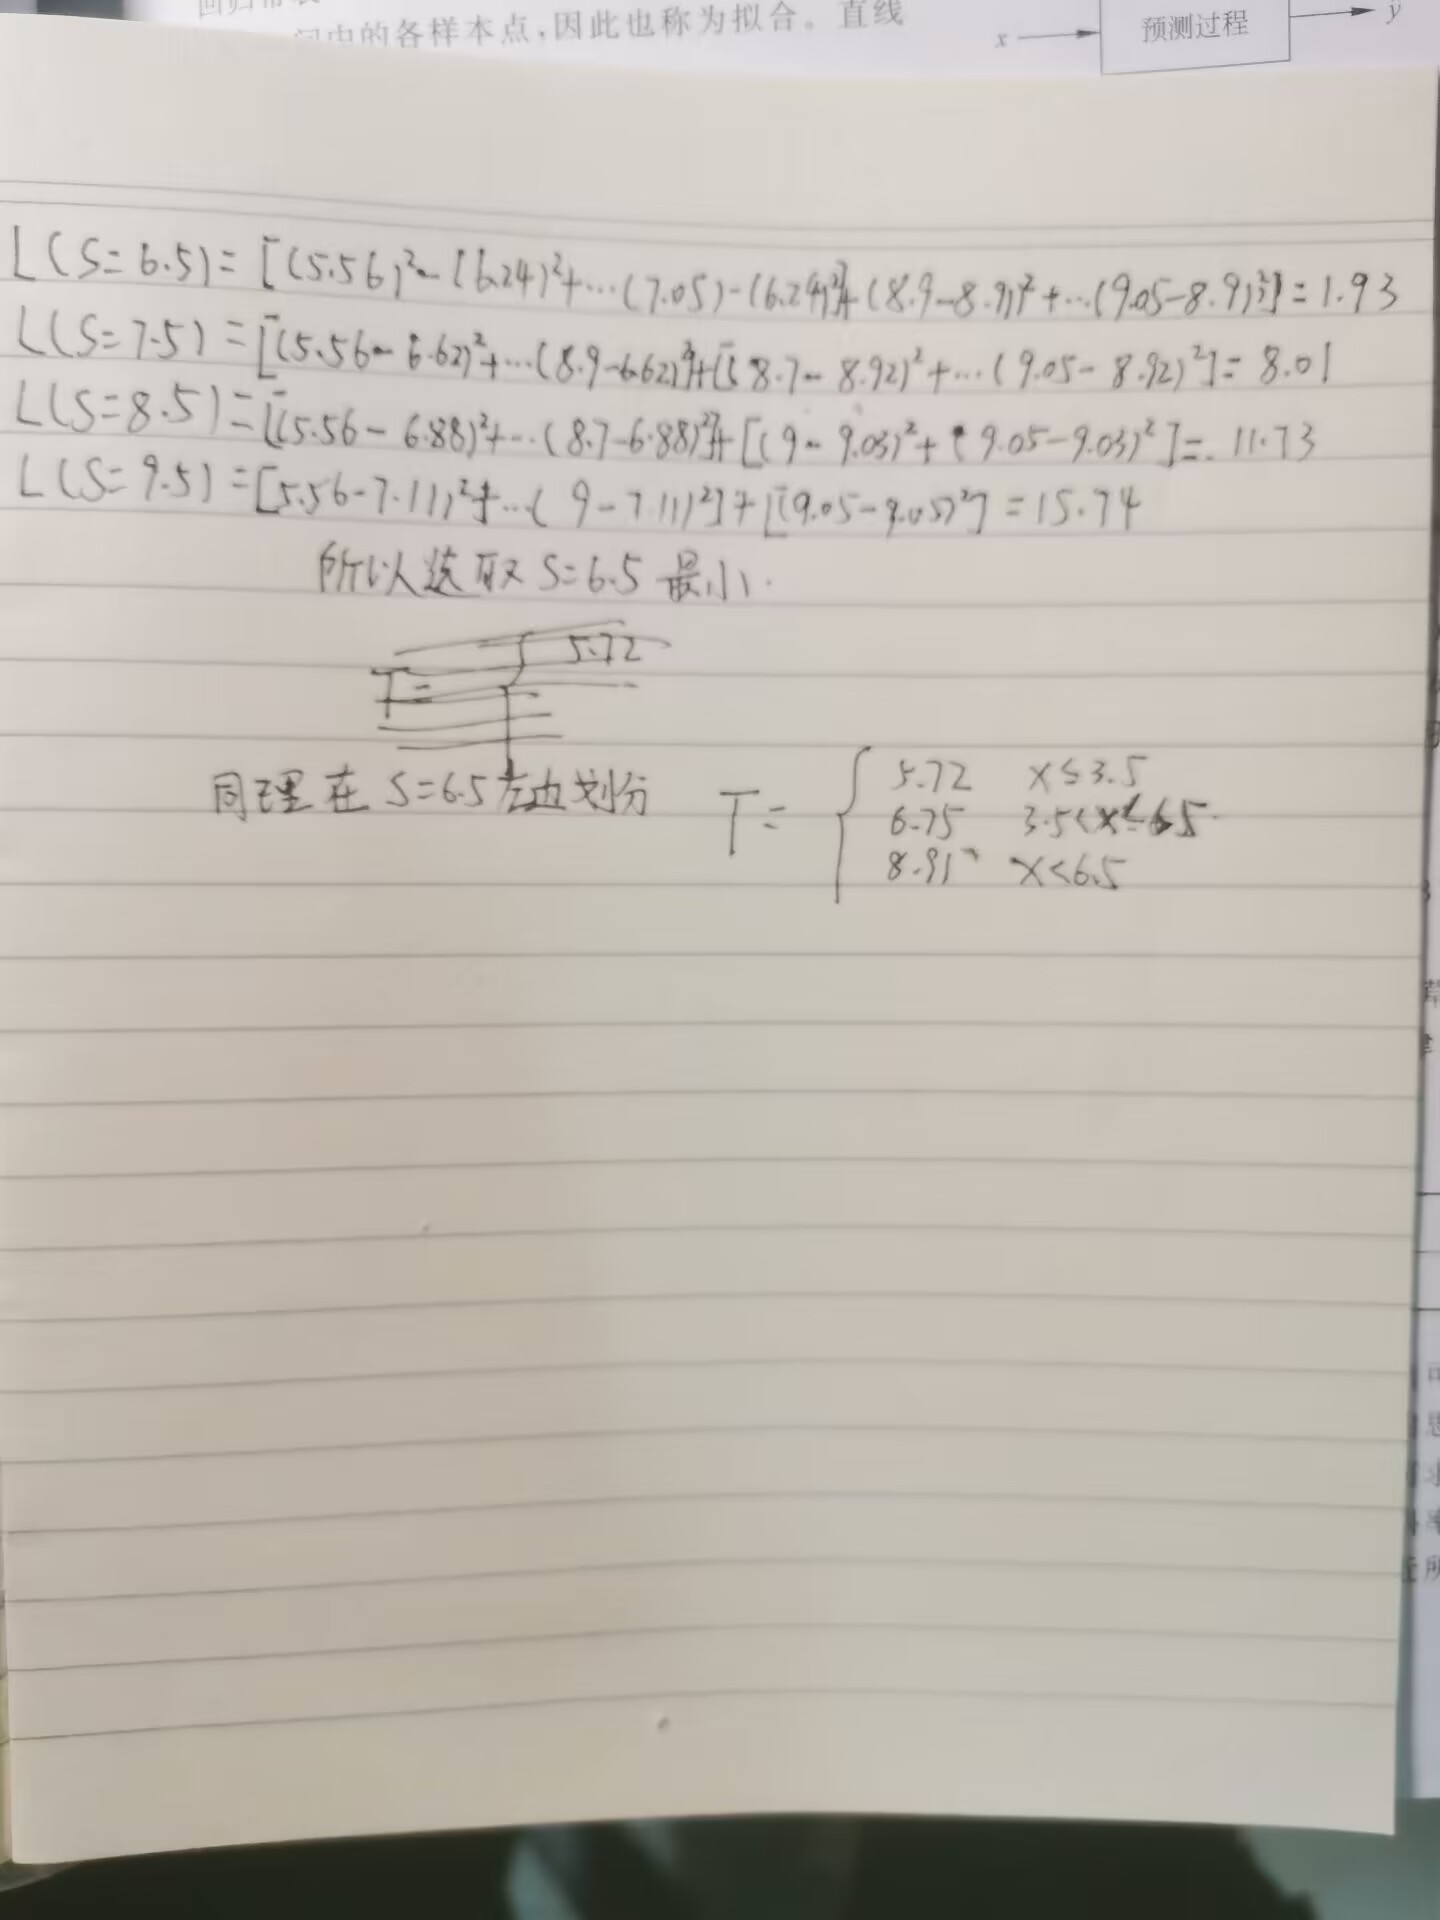 间中的各样本点,因此也称为拟合。直线
x 预测过程 ŷ
L(S=6.5)=[(5.56)²-(6.24)²+…(7.05)-(6.24)²]+(8.9-8.91)²+…(9.05-8.9)²]=1.93
L(S=7.5)=[(5.56-6.62)²+…(8.9-6.62)²]+[(8.7-8.92)²+…(9.05-8.92)²]=8.01
L(S=8.5)=[(5.56-6.88)²+…(8.7-6.88)²]+[(9-9.03)²+(9.05-9.03)²]=11.73
L(S=9.5)=[5.56-7.11)²+…(9-7.11)²]+[(9.05-9.05)²]=15.74
所以选取 S=6.5 最小.
T= { 5.72
同理在 S=6.5左边划分 T= {
5.72 x≤3.5
6.75 3.5<x≤6.5
8.91 x<6.5